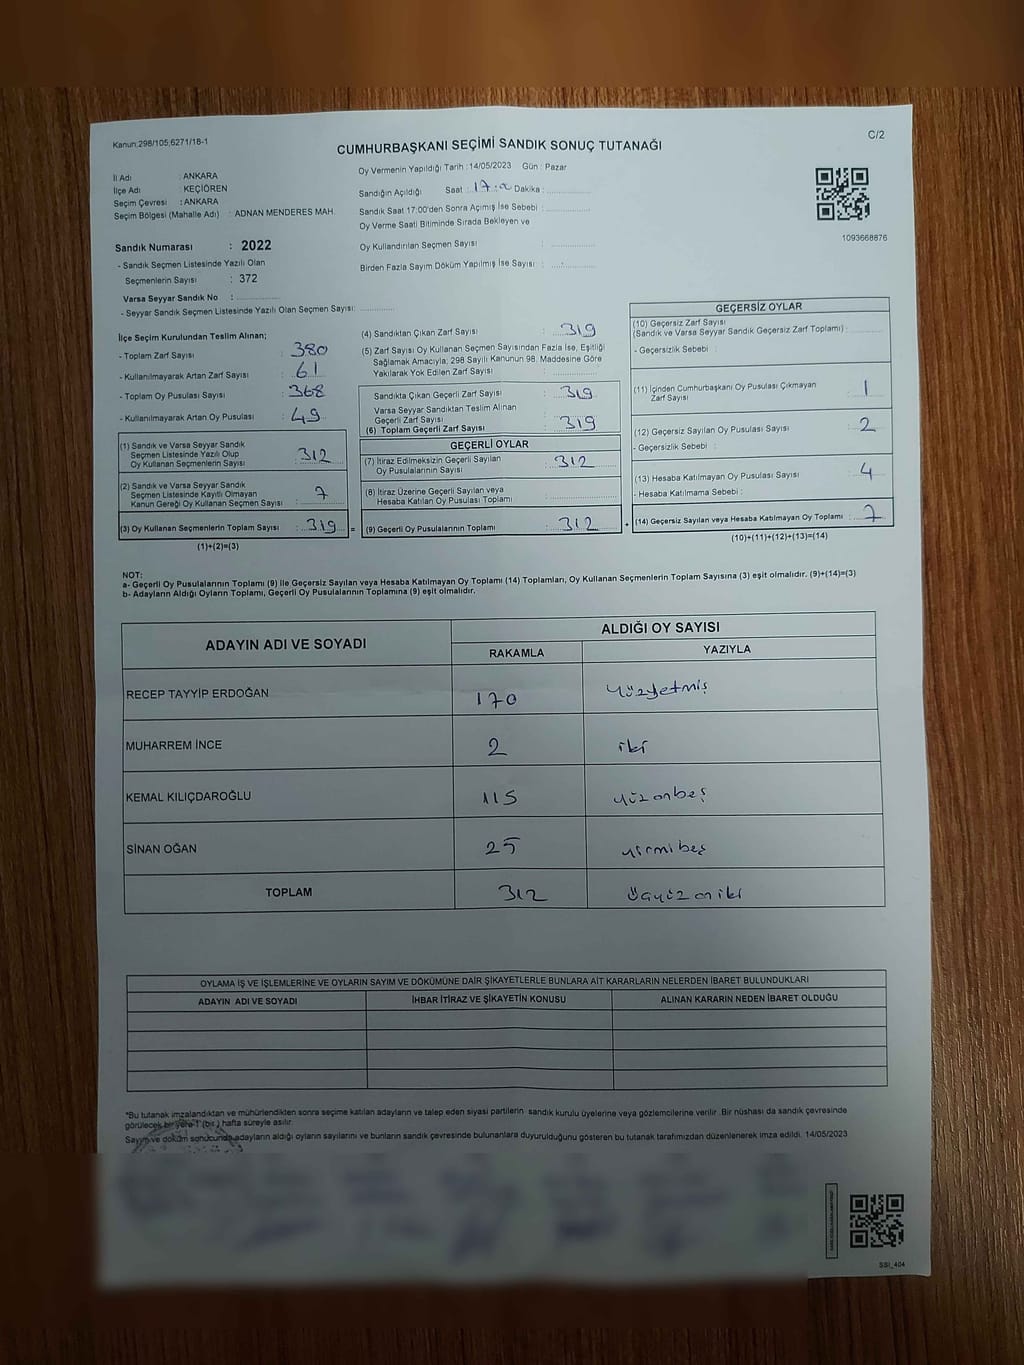 Kanun:298/105;6271/18-1
C/2
CUMHURBAŞKANI SEÇİMİ SANDIK SONUÇ TUTANAĞI
Oy Vermenin Yapıldığı Tarih :14/05/2023 Gün : Pazar
İl Adı : ANKARA
İlçe Adı : KEÇİÖREN
Seçim Çevresi : ANKARA
Seçim Bölgesi (Mahalle Adı) : ADNAN MENDERES MAH.
Sandığın Açıldığı Saat : 17:00 Dakika : ..............
Sandık Saat 17:00'den Sonra Açımış İse Sebebi : ..............
Oy Verme Saati Bitiminde Sırada Bekleyen ve
Oy Kullandırılan Seçmen Sayısı : ..............
Birden Fazla Sayım Döküm Yapılmış İse Sayısı : ..............
1093668876
Sandık Numarası : 2022
- Sandık Seçmen Listesinde Yazılı Olan
Seçmenlerin Sayısı : 372
Varsa Seyyar Sandık No : ..............
- Seyyar Sandık Seçmen Listesinde Yazılı Olan Seçmen Sayısı: ..............
İlçe Seçim Kurulundan Teslim Alınan;
- Toplam Zarf Sayısı : 380
- Kullanılmayarak Artan Zarf Sayısı : 61
- Toplam Oy Pusulası Sayısı : 368
- Kullanılmayarak Artan Oy Pusulası : 49
(1) Sandık ve Varsa Seyyar Sandık
Seçmen Listesinde Yazılı Olup
Oy Kullanan Seçmenlerin Sayısı : 312
(2) Sandık ve Varsa Seyyar Sandık
Seçmen Listesinde Kayıtlı Olmayan
Kanun Gereği Oy Kullanan Seçmen Sayısı : 7
(3) Oy Kullanan Seçmenlerin Toplam Sayısı : 319 =
(1)+(2)=(3)
(4) Sandıktan Çıkan Zarf Sayısı : 319
(5) Zarf Sayısı Oy Kullanan Seçmen Sayısından Fazla İse, Eşitliği
Sağlamak Amacıyla; 298 Sayılı Kanunun 98. Maddesine Göre
Yakılarak Yok Edilen Zarf Sayısı : ..............
Sandıkta Çıkan Geçerli Zarf Sayısı : 319
Varsa Seyyar Sandıktan Teslim Alınan
Geçerli Zarf Sayısı :
(6) Toplam Geçerli Zarf Sayısı : 319
GEÇERLİ OYLAR
(7) İtiraz Edilmeksizin Geçerli Sayılan
Oy Pusulalarının Sayısı : 312
(8) İtiraz Üzerine Geçerli Sayılan veya
Hesaba Katılan Oy Pusulası Toplamı : ..............
(9) Geçerli Oy Pusulalarının Toplamı : 312 +
GEÇERSİZ OYLAR
(10) Geçersiz Zarf Sayısı
(Sandık ve Varsa Seyyar Sandık Geçersiz Zarf Toplamı) : ..............
- Geçersizlik Sebebi :
(11) İçinden Cumhurbaşkanı Oy Pusulası Çıkmayan
Zarf Sayısı : 1
(12) Geçersiz Sayılan Oy Pusulası Sayısı : 2
- Geçersizlik Sebebi :
(13) Hesaba Katılmayan Oy Pusulası Sayısı : 4
- Hesaba Katılmama Sebebi :
(14) Geçersiz Sayılan veya Hesaba Katılmayan Oy Toplamı : 7
(10)+(11)+(12)+(13)=(14)
NOT:
a- Geçerli Oy Pusulalarının Toplamı (9) ile Geçersiz Sayılan veya Hesaba Katılmayan Oy Toplamı (14) Toplamları, Oy Kullanan Seçmenlerin Toplam Sayısına (3) eşit olmalıdır. (9)+(14)=(3)
b- Adayların Aldığı Oyların Toplamı, Geçerli Oy Pusulalarının Toplamına (9) eşit olmalıdır.
ADAYIN ADI VE SOYADI
ALDIĞI OY SAYISI
RAKAMLA YAZIYLA
RECEP TAYYİP ERDOĞAN 170 Yüzyetmiş
MUHARREM İNCE 2 iki
KEMAL KILIÇDAROĞLU 115 yüzonbeş
SİNAN OĞAN 25 yirmibeş
TOPLAM 312 üçyüzoniki
OYLAMA İŞ VE İŞLEMLERİNE VE OYLARIN SAYIM VE DÖKÜMÜNE DAİR ŞİKAYETLERLE BUNLARA AİT KARARLARIN NELERDEN İBARET BULUNDUKLARI
ADAYIN ADI VE SOYADI İHBAR İTİRAZ VE ŞİKAYETİN KONUSU ALINAN KARARIN NEDEN İBARET OLDUĞU
*Bu tutanak imzalandıktan ve mühürlendikten sonra seçime katılan adayların ve talep eden siyasi partilerin sandık kurulu üyelerine veya gözlemcilerine verilir. Bir nüshası da sandık çevresinde
görülecek bir yere 1 (bir) hafta süreyle asılır.
Sayım ve döküm sonucunda adayların aldığı oyların sayılarını ve bunların sandık çevresinde bulunanlara duyurulduğunu gösteren bu tutanak tarafımızdan düzenlenerek imza edildi. 14/05/2023
SSI_404